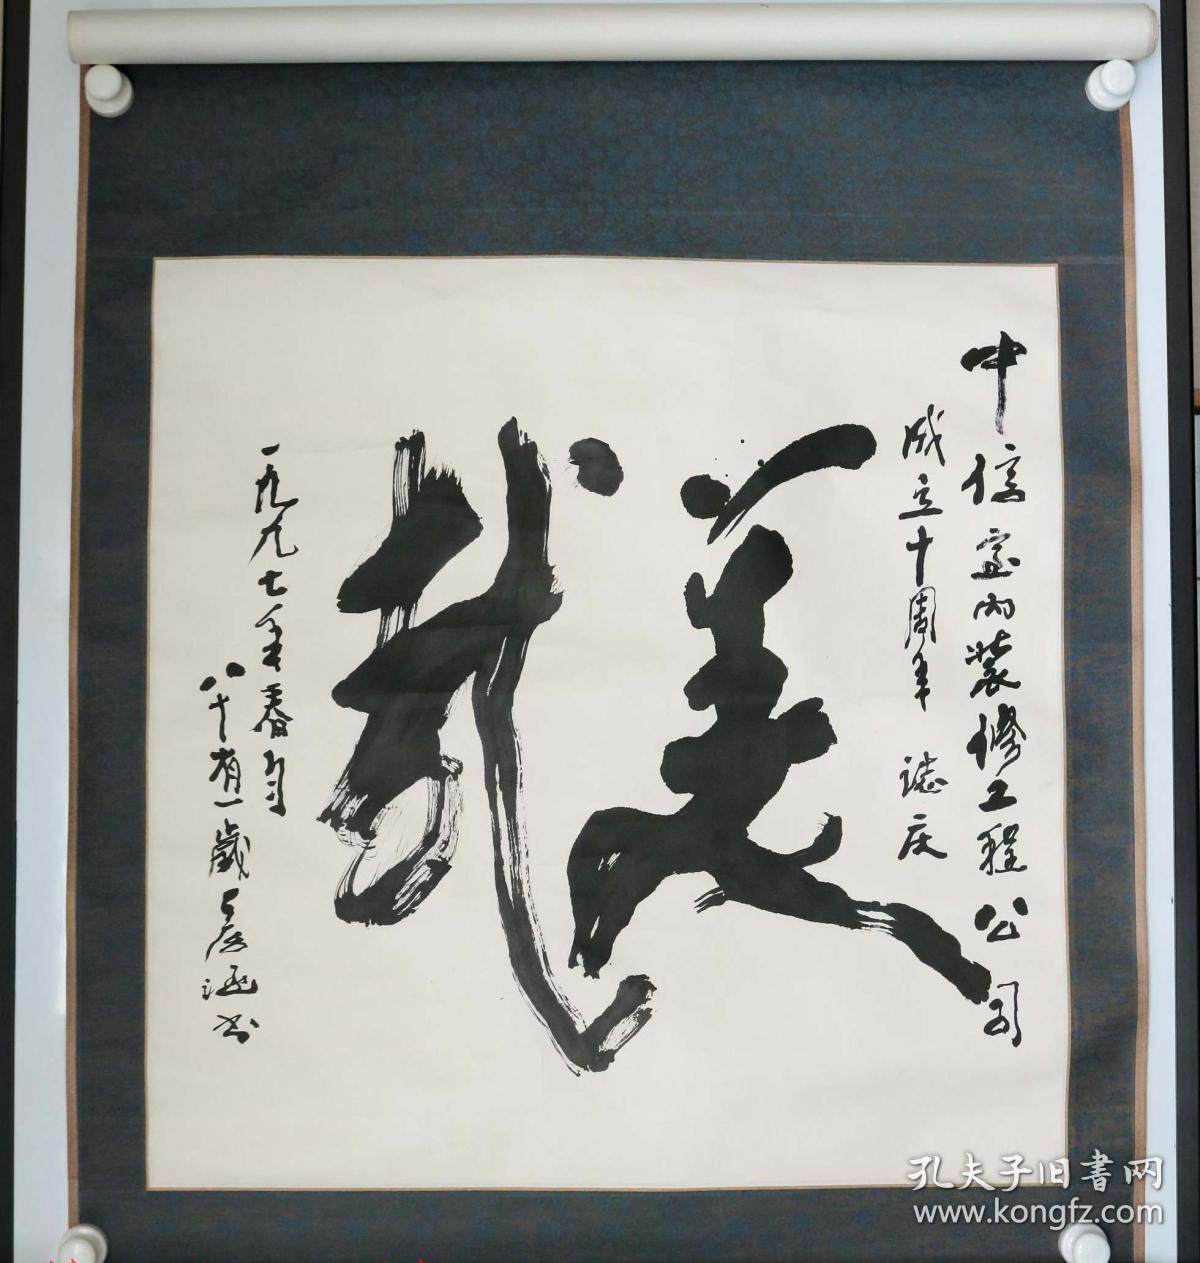 中信室内裝修工程公司
成立十周年 誌庆
美哉
一九九七年春月
八十有一歲彦涵书
孔夫子旧書网
www.kongfz.com